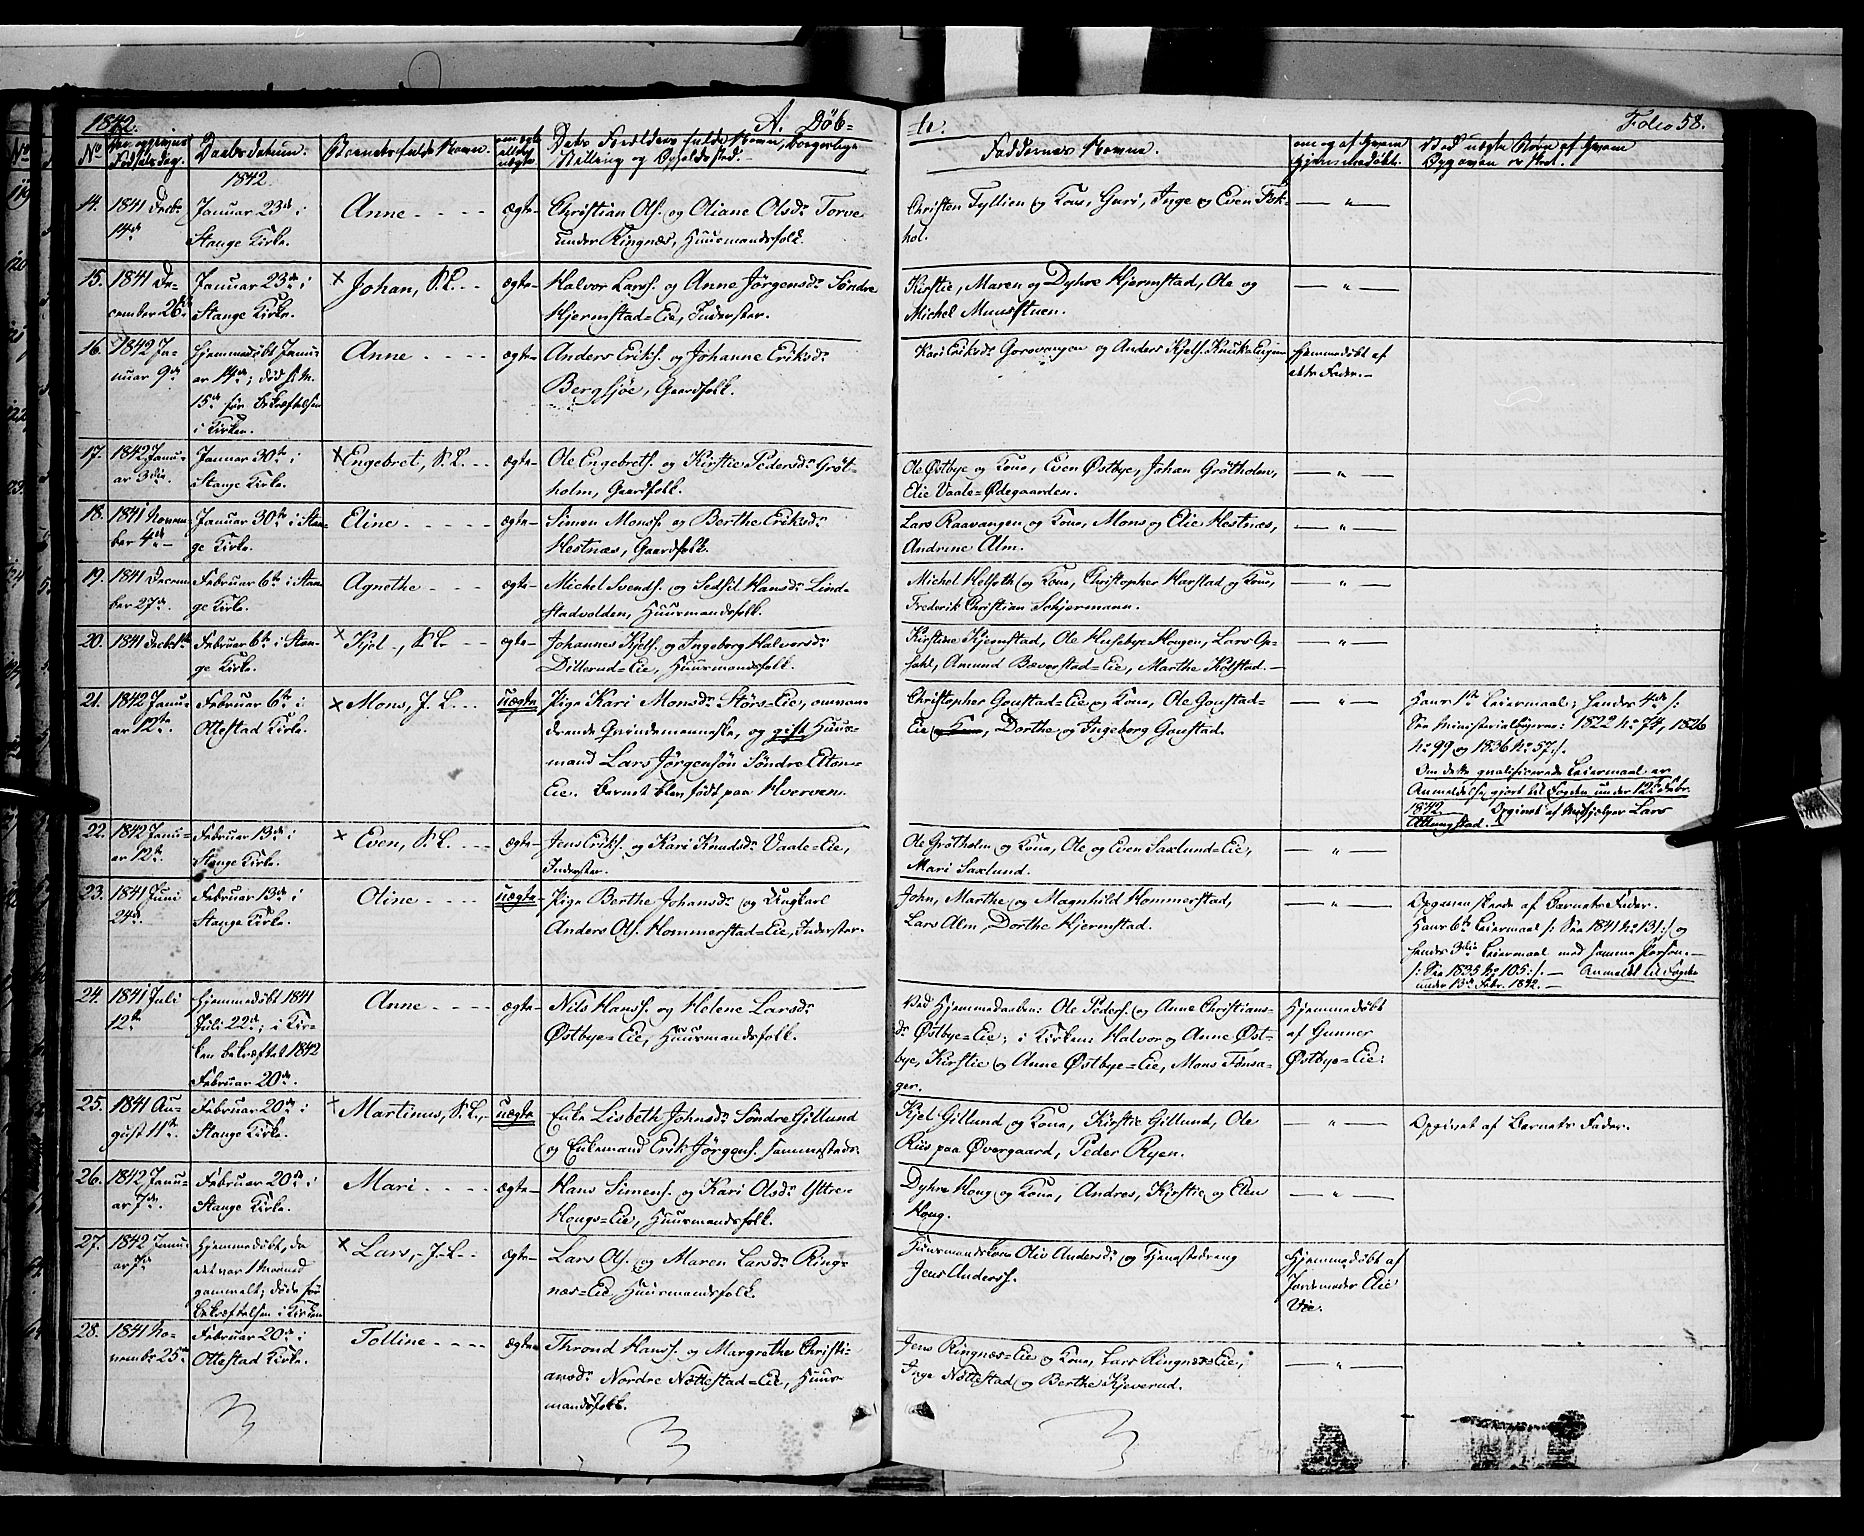 1842.
A. Døb-
te.
Folio 58.
No
Aar og given Fødselsdag.
Daabsdatum.
Barnets fulde Navn.
om ægte eller uægte
Dets Forældres fulde Navn, borgerlige
Stilling og Opholdssted.
Faddernes Navne.
om og af Hvem
Hjemmedøbt.
Ved uægte Børn af Hvem
Opgaven er skeet.
1842.
14.
1841 Decbr.
14de
Januar 23de i
Stange Kirke.
Anne
ægte
Christian Ols. og Oliane Olsdr. Torve
under Ringnæs, Huusmandsfolk.
Christen Tyllien og Kone, Guri, Inge og Even Fok-
hol.
15.
1841 De-
cember 26de
Januar 23de i
Stange Kirke.
x Johan, S. L.
ægte
Halvor Lars. og Anne Jørgensdr. Søndre
Hjermstad=Eie, Inderster.
Kirstie, Maren og Dyhre Hjermstad, Ole og
Michel Muusstuen.
16.
1842 Ja-
nuar 9de
Hjemmedøbt Janu-
ar 14de; død s. M.
15de før bekræftelsen
i Kirken.
Anne
ægte
Anders Eriks. og Johanne Eriksdr.
Bergsjøe, Gaardfolk.
Kari Eriksdr. Gorovangen og Anders Kjels. Knuk=Engen
Hjemmedøbt af
dets Fader.
17.
1842 Janu-
ar 3die.
Januar 30te i
Stange Kirke.
x Engebret, S. L.
ægte
Ole Engebrets. og Kirstie Pedersdr. Grøt-
holm, Gaardfolk.
Ole Østbye og Kone, Even Østbye, Johan Grøtholm,
Elie Vaale=Ødegaarden.
18.
1841 Novem-
ber 4de
Januar 30te i Stan-
ge Kirke.
Eline
ægte
Simen Mons. og Berthe Eriksdr.
Hestnæs, Gaardfolk.
Lars Raavangen og Kone, Mons og Elie Hestnæs,
Andrine Alm.
19.
1841 Decem-
ber 27de.
Februar 6te i Stan-
ge Kirke.
Agnethe
ægte
Michel Svends. og Sedsel Hansdr. Lind-
stadvolden, Huusmandsfolk.
Michel Helseth og Kone, Christopher Harstad og Kone,
Frederik Christian Schjermann.
20.
1841 Decbr
Februar 6te i Stan-
ge Kirke.
x Kjel, S. L.
ægte
Johannes Kjels. og Ingeborg Halvorsdr.
Dillerud=Eie, Huusmandsfolk.
Kirstine Hjermstad, Ole Husebye Hougen, Lars Op-
sahl, Amund Bæverstad=Eie, Marthe Kolstad.
21.
1842 Janu-
ar 12te.
Februar 6te i
Ottestad Kirke.
x Mons, J. L.
uægte
Pige Kari Monsdr. Størs=Eie, omvan-
drende Qvindemenneske, og gift Huus-
mand Lars Jørgensøn Søndre Alon=
Eie. Barnet blev født paa Hverven.
Christopher Goustad=Eie og Kone, Ole Goustad=
Eie og Kone, Dorthe og Ingeborg Goustad.
Hans 1ste Leiermaal; hendes 4de /:
See Ministerialbøgerne: 1822 No 74, 1826
No 99 og 1836 No 57 :/.
Om dette qvalificerede Leiermaal er
Anmeldelse gjort til Fogden under 12te Febr.
1842. Opgivet af Medhjelper Lars
Atlungstad.
22.
1842 Janu-
ar 12te.
Februar 13de i
Stange Kirke.
x Even, S. L.
ægte
Jens Eriks. og Kari Knudsdr. Vaale=Eie,
Inderster.
Ole Grøtholm og Kone, Ole og Even Saxlund=Eie,
Mari Saxlund.
23.
1841 Juni
24de.
Februar 13de i
Stange Kirke.
Oline
uægte
Pige Berthe Johansdr. og Ungkarl
Anders Ols. Hommerstad=Eie, Inderster.
John, Marthe og Magnhild Hommerstad,
Lars Alm, Dorthe Hjermstad.
Opgaven skede af Barnets Fader.
Hans 6te Leiermaal /: See 1841 No 131 :/ og
hendes 3die Leiermaal med samme Person
/: See 1835 No 105 :/. Anmeldt til Fogden
under 13de Febr. 1842.
24.
1841 Juli
12te
Hjemmedøbt 1841
Juli 22de; i Kir-
ken bekræftet 1842
Februar 20de.
Anne
ægte
Nils Hans. og Helene Larsdr.
Østbye=Eie, Huusmandsfolk.
Ved Hjemmedaaben: Ole Peders. og Anne Christians-
dr. Østbye=Eie; i Kirken: Halvor og Anne Øst-
bye, Kirstie og Anne Østbye=Eie, Mons Fønsa-
ger.
Hjemmedøbt
af Gunner
Østbye=Eie.
25.
1841 Au-
gust 11te.
Februar 20de i
Stange Kirke.
x Martinus, S. L.,
uægte
Enke Lisbeth Johnsdr. Søndre Gillund
og Enkemand Erik Jørgens. sammesteds.
Kjel Gillund og Kone, Kirstie Gillund, Ole
Riis paa Øvergaard, Peder Ryen.
Opgivet af Barnets Fader.
26.
1842 Janu-
ar 7de.
Februar 20de i
Stange Kirke.
Mari
ægte
Hans Simens. og Kari Olsdr. Yttre-
Hougs=Eie, Huusmandsfolk.
Dyhre Houg og Kone, Andres, Kirstie og Elen
Houg.
27.
1842 Janu-
ar 7de
Hjemmedøbt, da
det var 1 Maaned
gammelt; døde før
bekræftelsen i Kirken
x Lars, J. L.
ægte
Lars Ols. og Maren Larsdr. Ring-
næs=Eie, Huusmandsfolk.
Huusmandskone Oliv Andersdr. og Tjenestedreng
Jens Anders.
Hjemmedøbt af
Jordemoder Elie
Vie.
28.
1841 No-
vember 25de
Februar 20de i
Ottestad Kirke.
Tolline
ægte
Thrond Hans. og Margrethe Christi-
ansdr. Nordre Nøttestad=Eie, Huus-
mandsfolk.
Jens Ringnæs=Eie og Kone, Lars Ringnæs=Eie,
Inge Nøttestad og Berthe Kjeverud.
3
3
3